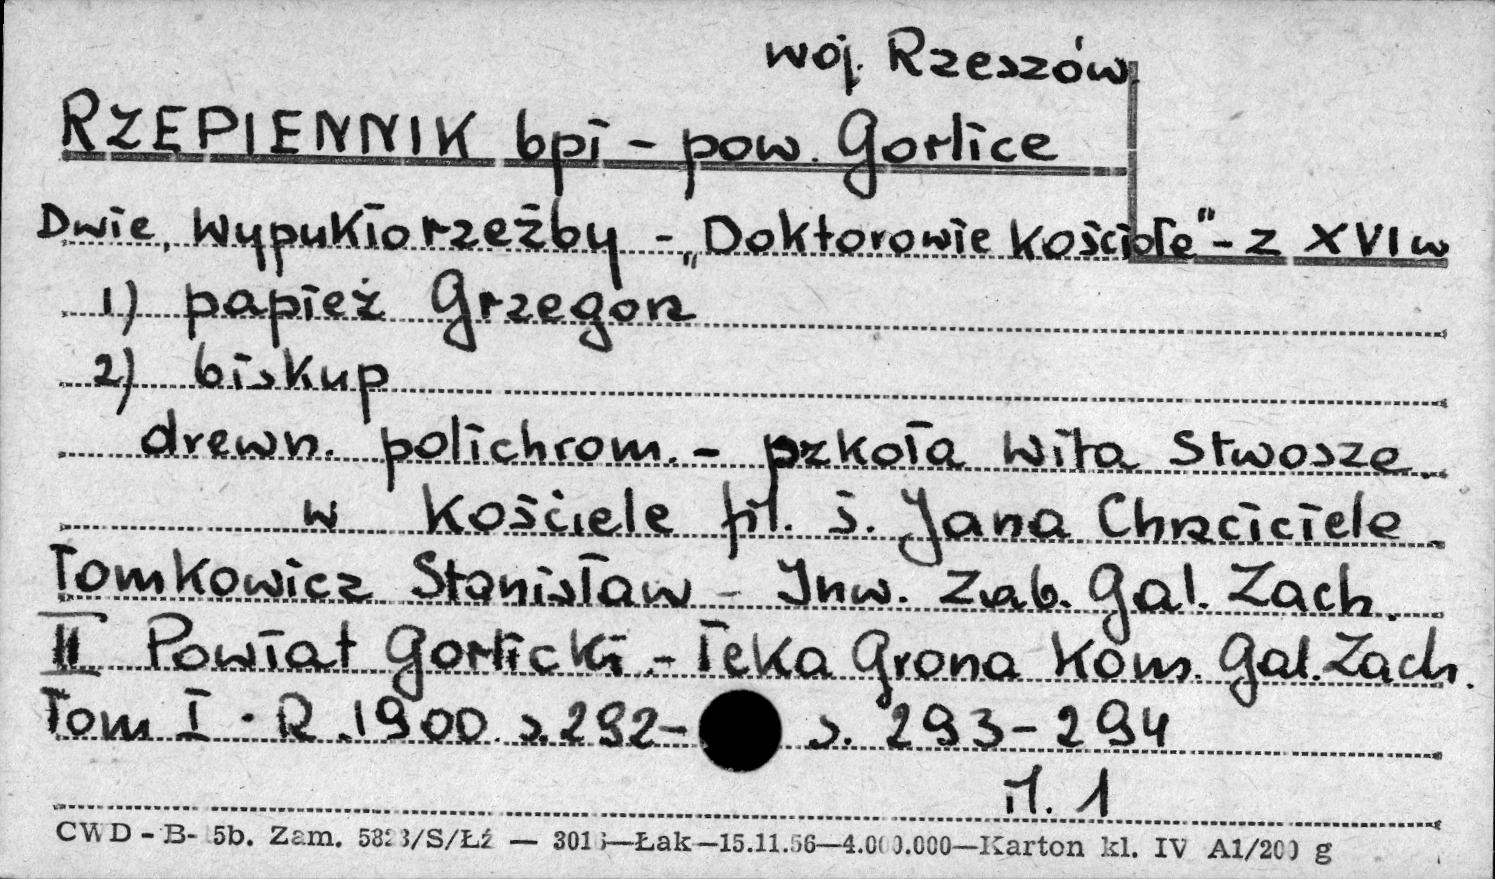 woj. Rzeszów
RZEPIENNIK bpi - pow. Gorlice
Dwie wypukłorzeźby - „Doktorowie kościoła" - z XVI w
1) papież Grzegorz
2) biskup
drewn. polichrom. - szkoła Wita Stwosza
w kościele fil. ś. Jana Chrzciciela
Tomkowicz Stanisław - Inw. Zab. Gal. Zach.
II Powiat Gorlicki - Teka Grona Kons. Gal. Zach.
Tom I. R. 1900 s. 292- s. 293-294
il. 1
CWD - B- 5b. Zam. 5823/S/Łź — 3016—Łak—15.11.56—4.000.000—Karton kl. IV A1/200 g